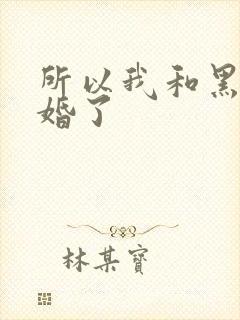 所以我和黑
婚了
林某寶